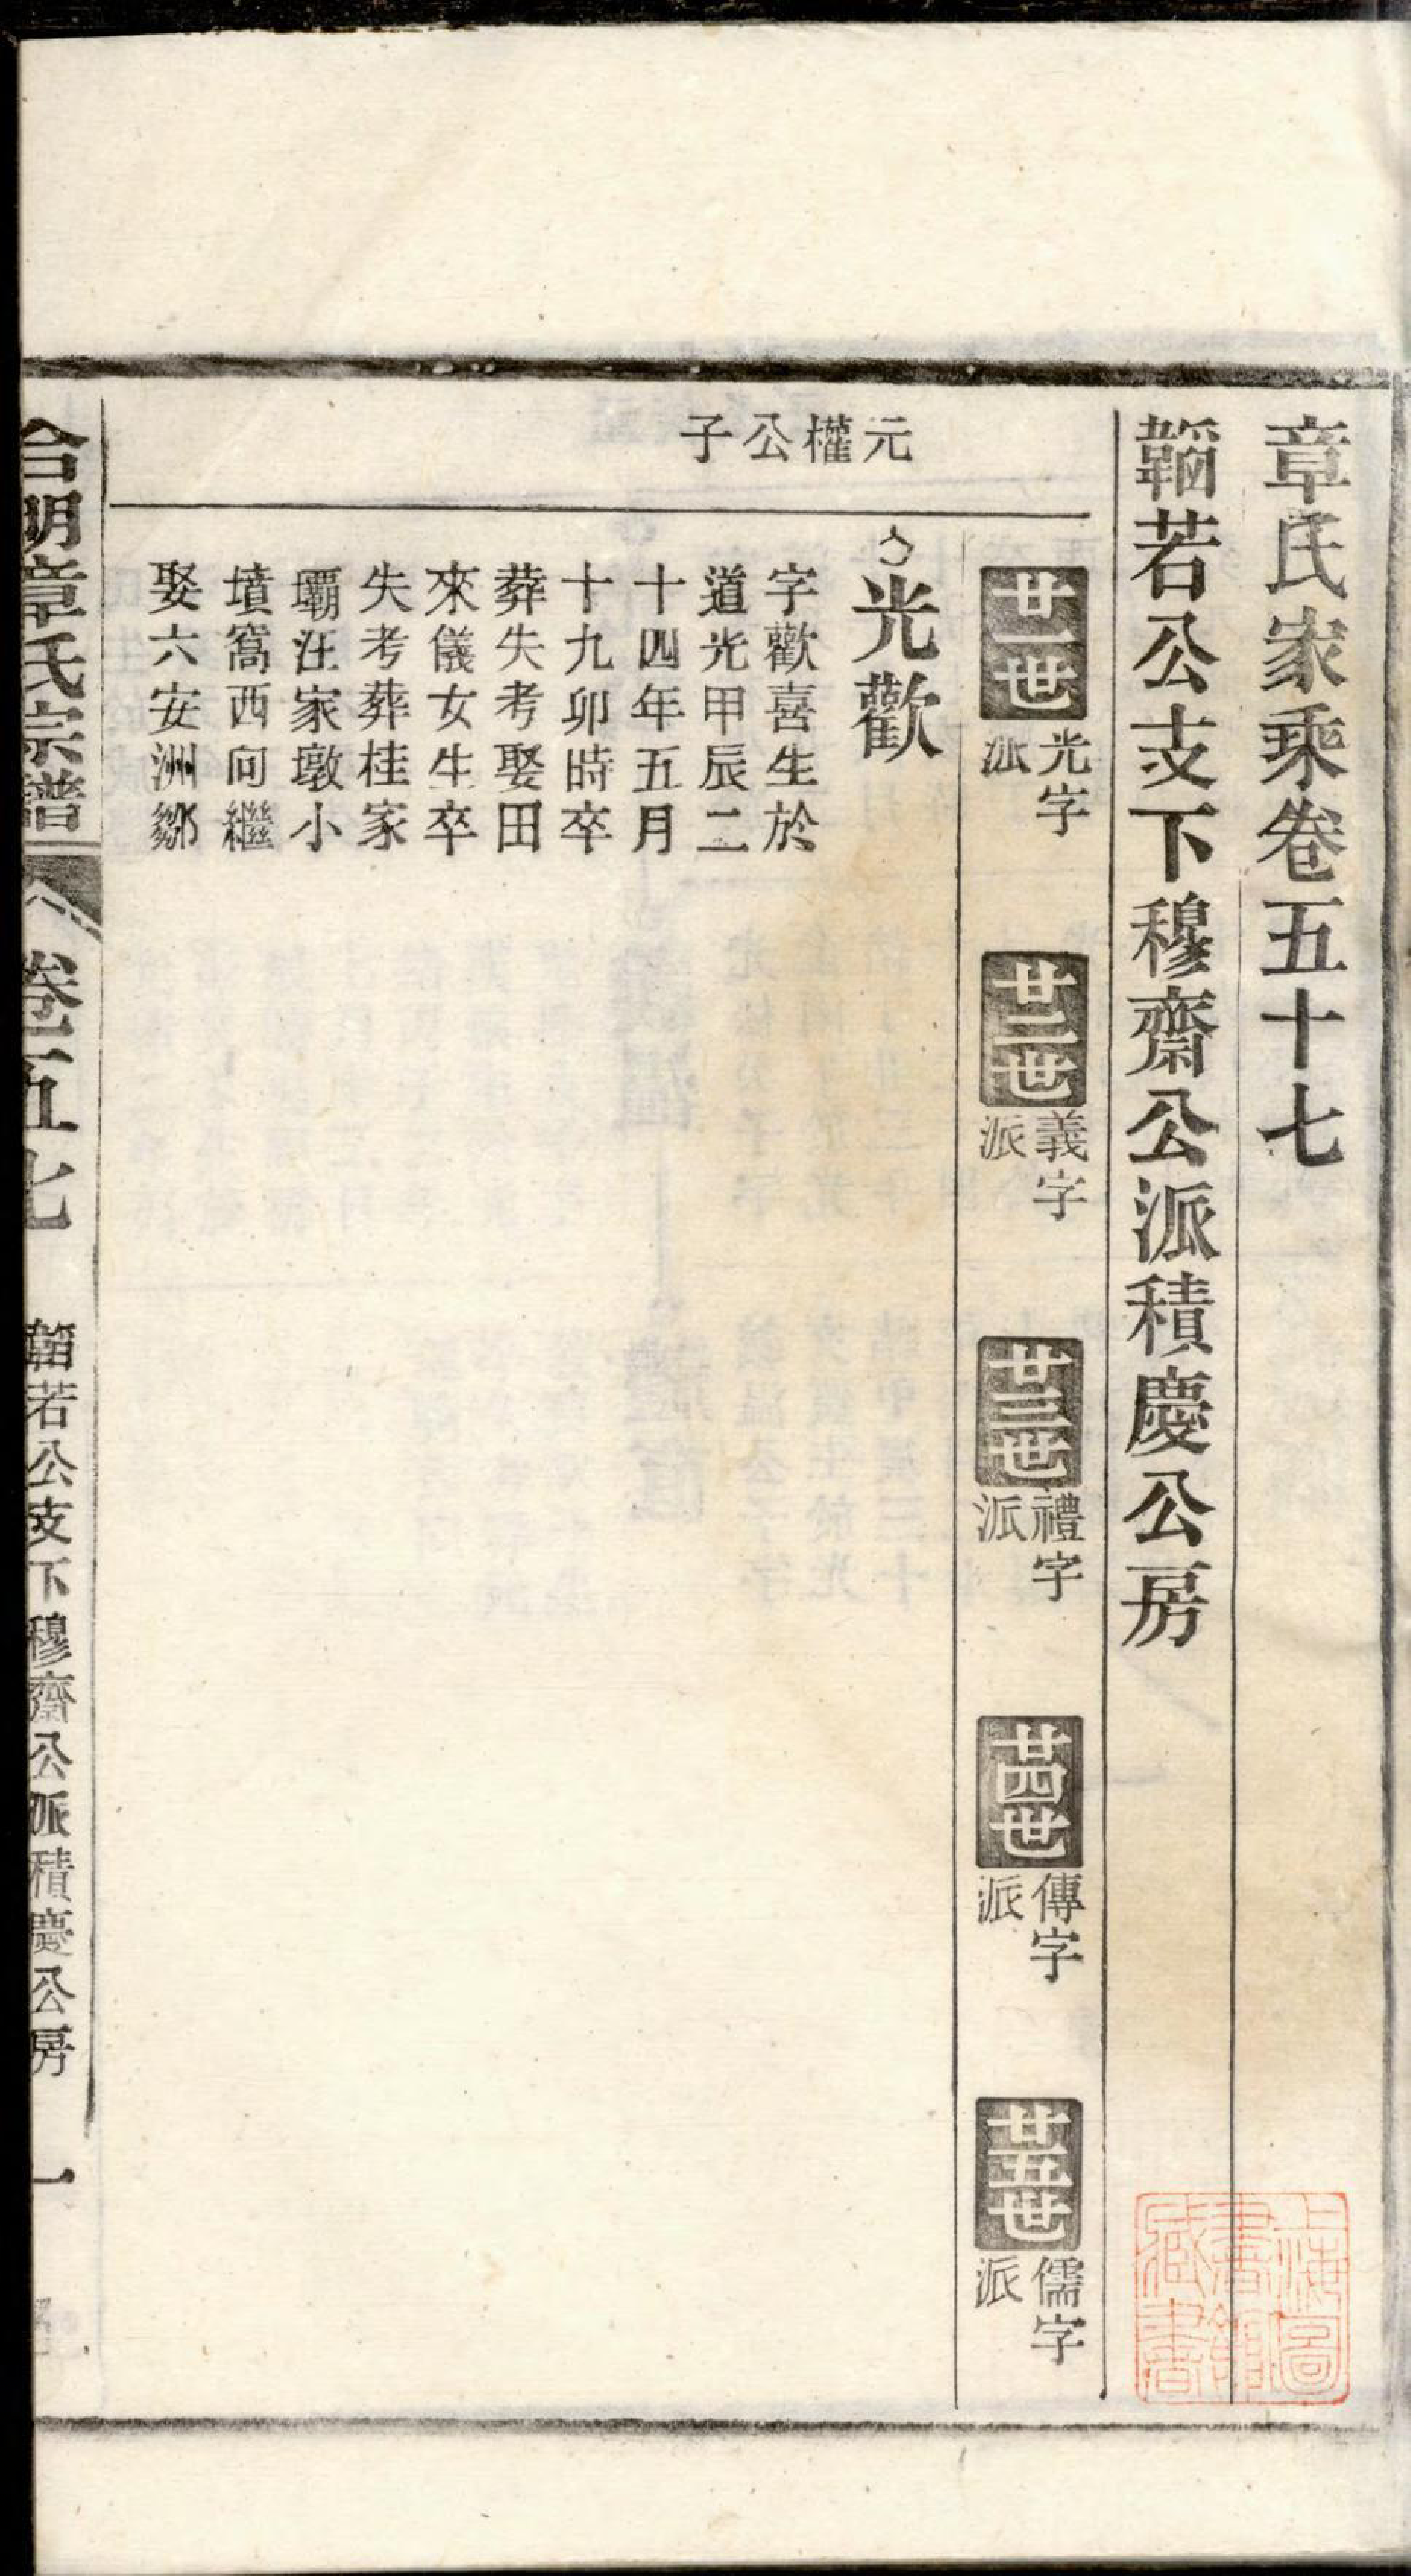 章氏家乘卷五十七
韜若公支下穆齋公派積慶公房
廿一世 光字派
廿二世 義字派
廿三世 禮字派
廿四世 傳字派
廿五世 儒字派
元權公子
光歡
字歡喜生於
道光甲辰二
十四年五月
十九卯時卒
葬失考娶田
來儀女生卒
失考葬桂家
壩汪家墩小
墳窩西向繼
娶六安洲鄒
合明章氏宗譜
卷五七
韜若公支下穆齋公派積慶公房
一
上海圖書館藏書